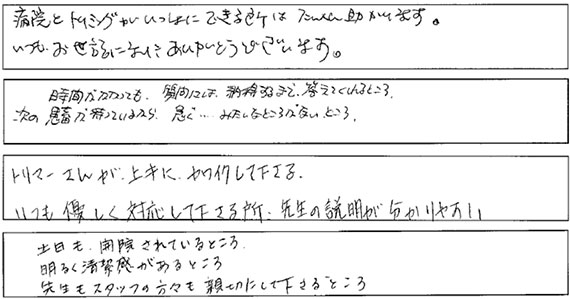 病院とトリミングがいっしょにできる所はたいへん助かります。
いつもお世話になりありがとうございます。
時間がかかっても、質問には、納得するまで、答えてくれるところ、
次の患畜が待っているから、急ぐ…みたいなところがないところ。
トリマーさんが、上手に、カワイクして下さる、
いつも優しく対応して下さる所、先生の説明が分かりやすい
土日も、開院されているところ
明るく清潔感があるところ
先生もスタッフの方々も親切にして下さるところ